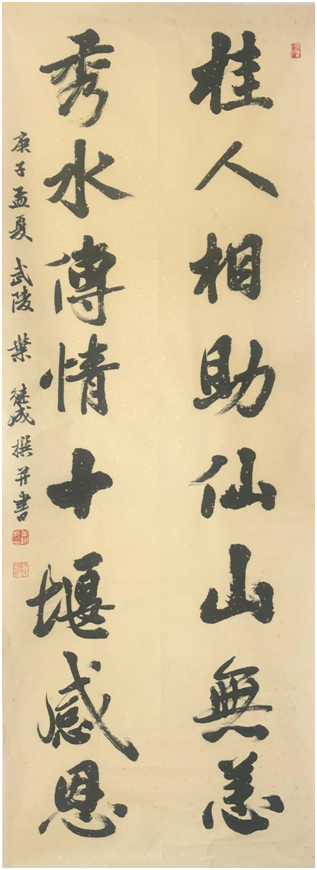 桂人相助仙山無恙
秀水傳情十堰感恩
庚子孟夏武陵葉继成撰并書